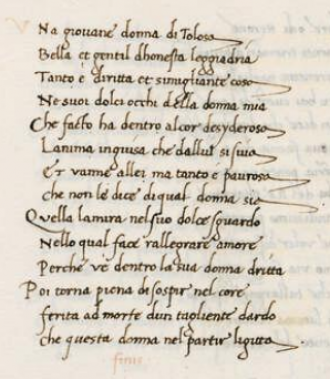 V Na giovane donna di Tolosa
Bella et gentil dhonesta leggiadria
Tanto e diritta et simigliante cosa
Ne suoi dolci occhi della donna mia
Che facto ha dentro alcor desyderosa
Lanima inguisa che dallui si suia
Et vanne allei ma tanto e paurosa
Che non le dice di qual donna sia
Quella lamira nel suo dolce sguardo
Nello qual face rallegrare amore
Perche ve dentro la sua donna dritta
Poi torna piena di sospir nel core
ferita ad morte dun tagliente dardo
che questa donna nel partir ligitta
finis